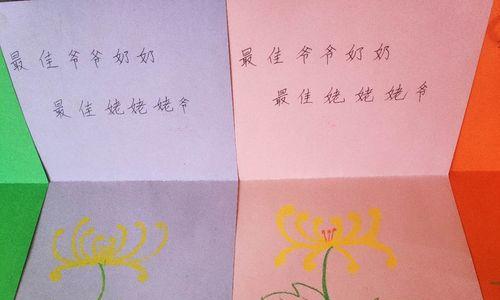 最佳爷爷奶奶
最佳姥姥姥爷
最佳爷爷奶奶
最佳姥姥姥爷